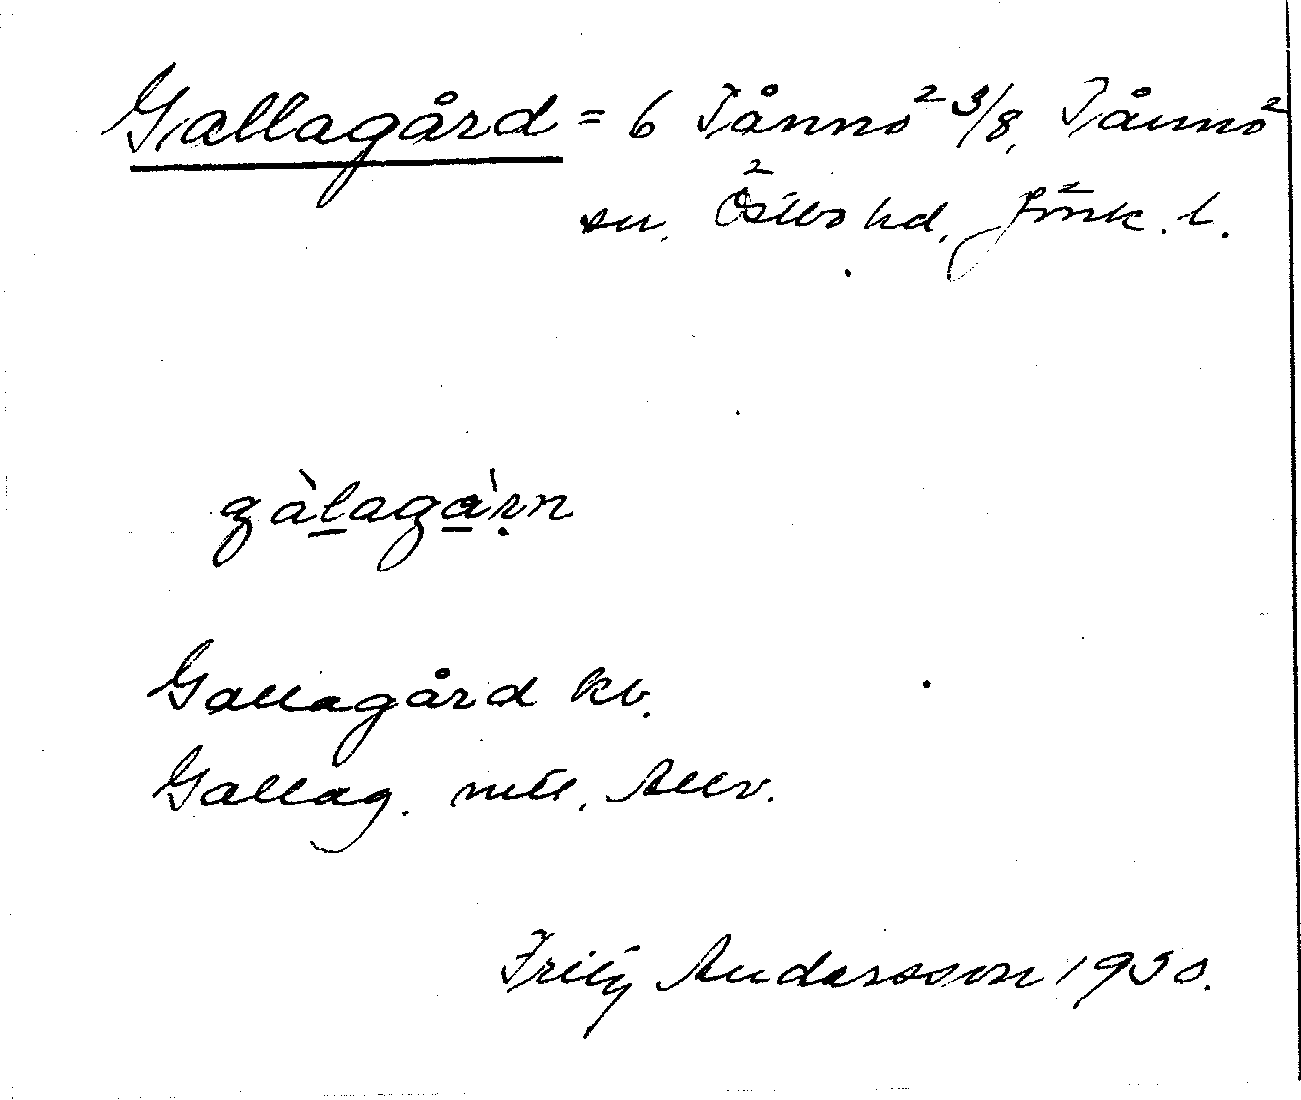 Gallagård = 6 Tånnö 3/8, Tånnö
sn. Östbo hd, Jönk. l.
gàlagàrn
Gallagård kb.
Gallag. mtl. Allv.
Fritz Andersson 1930.